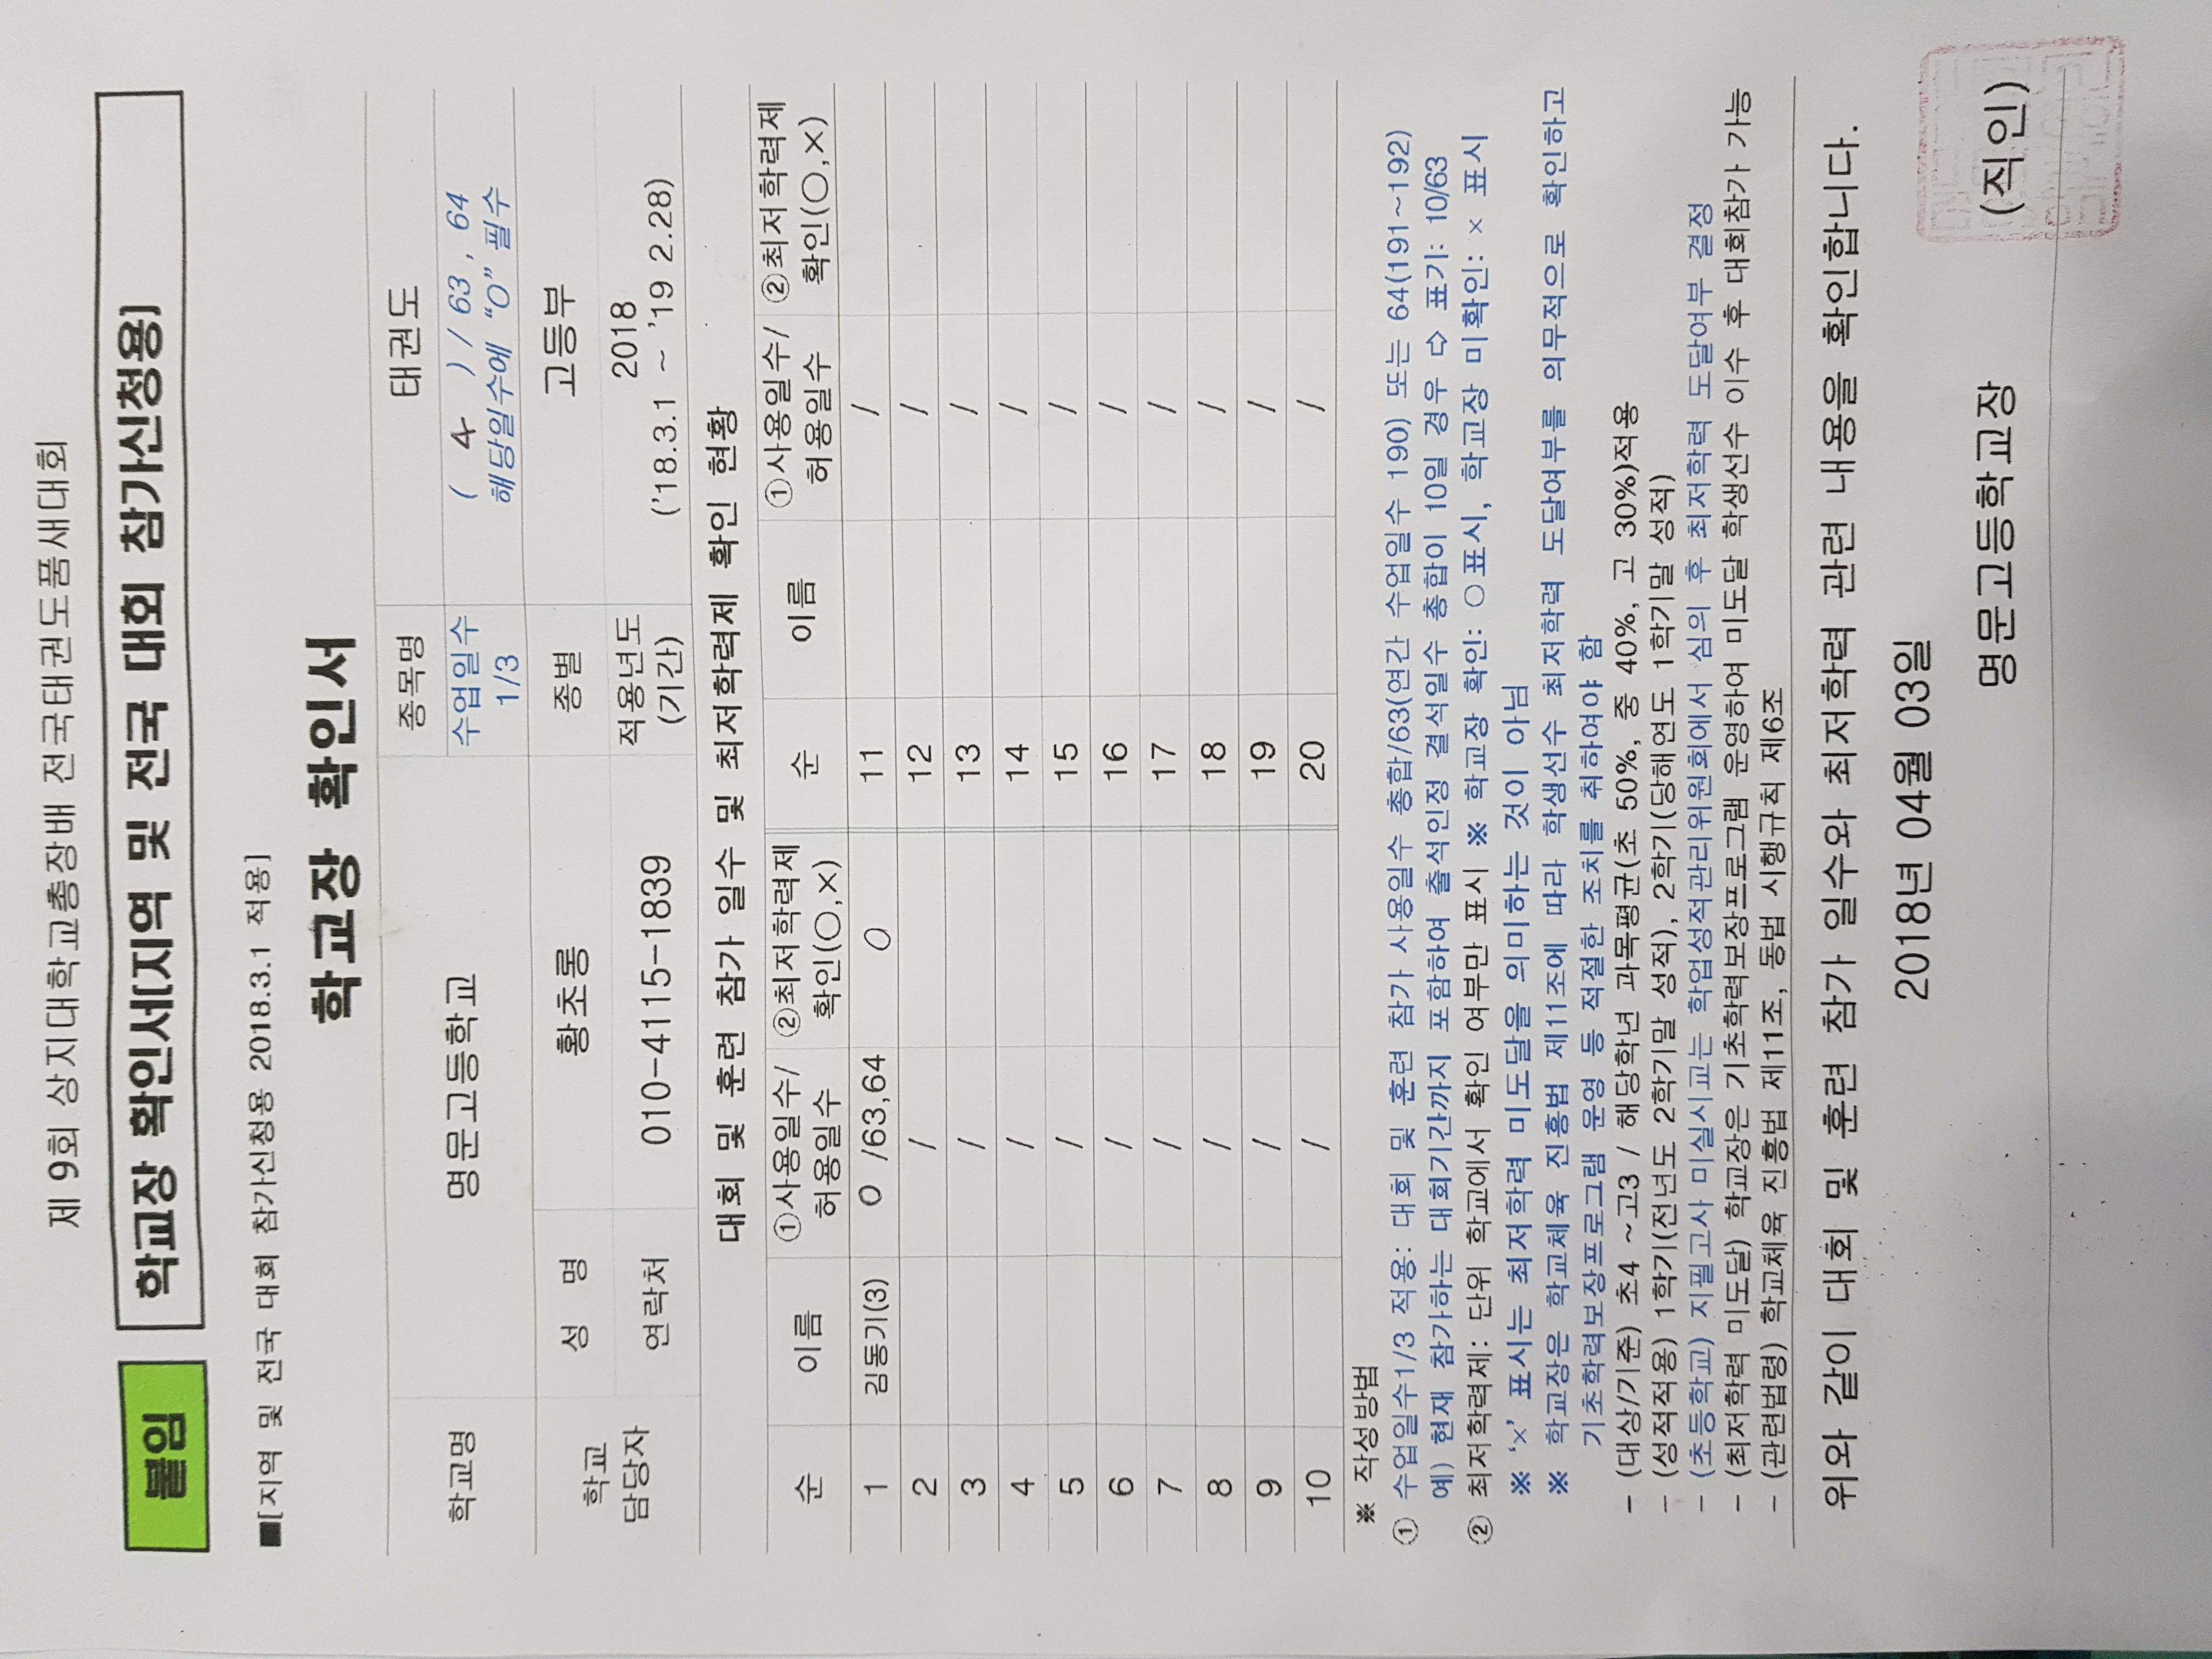 제 9회 상지대학교총장배 전국태권도품새대회
붙임 학교장 확인서(지역 및 전국 대회 참가신청용)
■[지역 및 전국 대회 참가신청용 2018.3.1 적용]
학교장 확인서
학교명 명문고등학교 종목명 태권도
수업일수 1/3 ( 4 ) / 63 , 64
해당일수에 “O” 필수
학교 담당자 성 명 황초롱 종별 고등부
연락처 010-4115-1839 적용년도 (기간) 2018
('18.3.1 ~ '19 2.28)
대회 및 훈련 참가 일수 및 최저학력제 확인 현황
순 이름 ①사용일수/ 허용일수 ②최저학력제 확인(○,×) 순 이름 ①사용일수/ 허용일수 ②최저학력제 확인(○,×)
1 김동기(3) 0 /63,64 O 11 /
2 / 12 /
3 / 13 /
4 / 14 /
5 / 15 /
6 / 16 /
7 / 17 /
8 / 18 /
9 / 19 /
10 / 20 /
※ 작성방법
① 수업일수1/3 적용: 대회 및 훈련 참가 사용일수 총합/63(연간 수업일수 190) 또는 64(191~192)
예) 현재 참가하는 대회기간까지 포함하여 출석인정 결석일수 총합이 10일 경우 ⇨ 표기: 10/63
② 최저학력제: 단위 학교에서 확인 여부만 표시 ※ 학교장 확인: ○표시, 학교장 미확인: × 표시
※ ‘×’ 표시는 최저학력 미도달을 의미하는 것이 아님
※ 학교장은 학교체육 진흥법 제11조에 따라 학생선수 최저학력 도달여부를 의무적으로 확인하고
기초학력보장프로그램 운영 등 적절한 조치를 취하여야 함
- (대상/기준) 초4 ~고3 / 해당학년 과목평균(초 50%, 중 40%, 고 30%)적용
- (성적적용) 1학기(전년도 2학기말 성적), 2학기(당해연도 1학기말 성적)
- (초등학교) 지필고사 미실시교는 학업성적관리위원회에서 심의 후 최저학력 도달여부 결정
- (최저학력 미도달) 학교장은 기초학력보장프로그램 운영하여 미도달 학생선수 이수 후 대회참가 가능
- (관련법령) 학교체육 진흥법 제11조, 동법 시행규칙 제6조
위와 같이 대회 및 훈련 참가 일수와 최저학력 관련 내용을 확인합니다.
2018년 04월 03일
명문고등학교장 (직인)